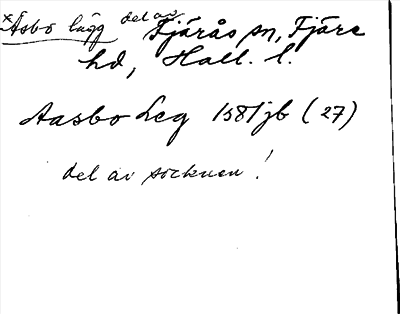 *Åsbo lägg del av Fjärås sn, Fjäre
hd, Hall. l.
Aasbo Leg 1581 jb (27)
del av socknen!